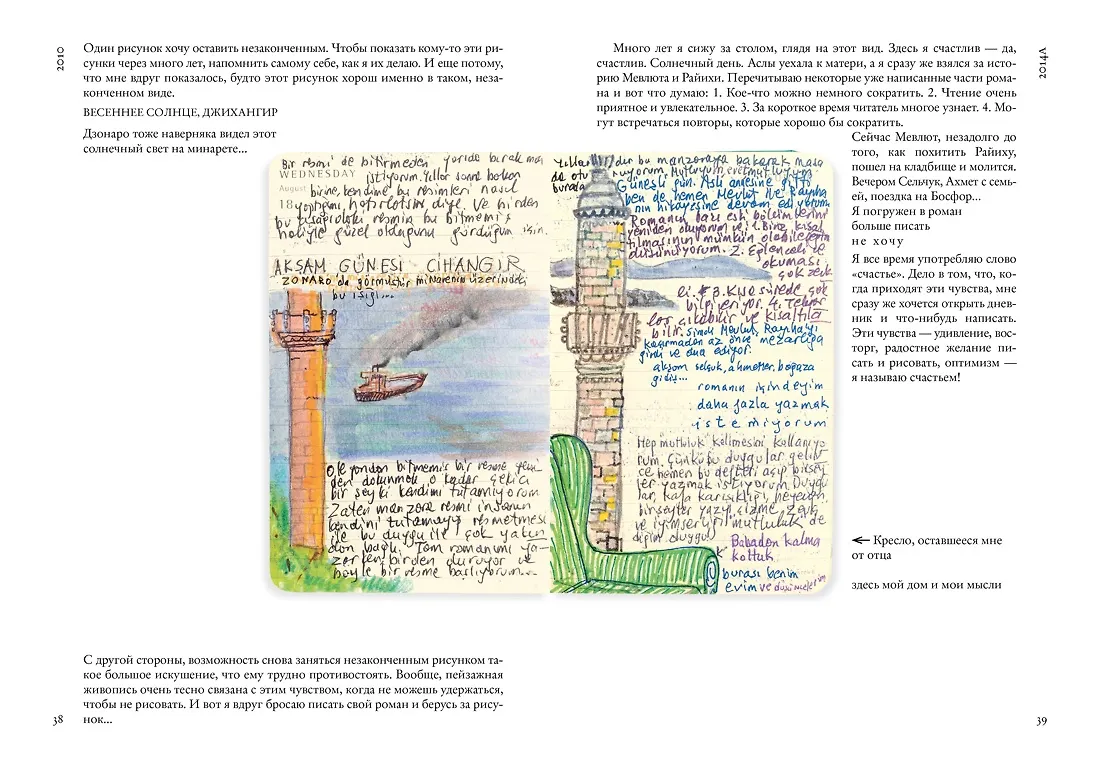 2010
Один рисунок хочу оставить незаконченным. Чтобы показать кому-то эти ри-
сунки через много лет, напомнить самому себе, как я их делаю. И еще потому,
что мне вдруг показалось, будто этот рисунок хорош именно в таком, неза-
конченном виде.
ВЕСЕННЕЕ СОЛНЦЕ, ДЖИХАНГИР
Дзонаро тоже наверняка видел этот
солнечный свет на минарете...
Bir resmi de bitirmeden yarıda bırakmak
WEDNESDAY
istiyorum. Yıllar sonra bakan
August
birine, kendime bu resimleri nasıl
18
yaptığımı, hatırlatsın diye. Ve birden
bu aşağıdaki resmin bu bitmemiş
haliyle güzel olduğunu gördüğüm için.
AKŞAM GÜNEŞİ CİHANGİR
ZONARO da görmüştür minarenin üzerindeki
bu ışığı...
Öte yandan bitmemiş bir resme yeni-
den dokunmak o kadar çekici
bir şey ki kendimi tutamıyorum
Zaten manzara resmi insanın
kendini tutamayıp resmetmesi
ile bu duygu ile çok yakın-
dan bağlı. Tam romanımı ya-
zarken birden duruyor ve
böyle bir resme başlıyorum...
С другой стороны, возможность снова заняться незаконченным рисунком та-
кое большое искушение, что ему трудно противостоять. Вообще, пейзажная
живопись очень тесно связана с этим чувством, когда не можешь удержаться,
чтобы не рисовать. И вот я вдруг бросаю писать свой роман и берусь за рису-
нок...
38
2014А
Много лет я сижу за столом, глядя на этот вид. Здесь я счастлив — да,
счастлив. Солнечный день. Аслы уехала к матери, а я сразу же взялся за исто-
рию Мевлюта и Райихи. Перечитываю некоторые уже написанные части рома-
на и вот что думаю: 1. Кое-что можно немного сократить. 2. Чтение очень
приятное и увлекательное. 3. За короткое время читатель многое узнает. 4. Мо-
гут встречаться повторы, которые хорошо бы сократить.
Yıllardır bu manzaraya bakarak masa
da oturuyorum. Mutluyum, evet mutluyum
burada
Güneşli gün. Aslı annesine gitti
ben de hemen Mevlut ile Rayiha
nın hikayesine devam ediyorum
Romanın bazı eski bölümlerini
yeniden okuyorum ve 1. Biraz kısal
tılmasının mümkün olabileceğini
düşünüyorum. 2. Eğlenceli ve
okuması
çok zevk
li. 3. Kısa sürede çok
bilgi veriyor. 4. Tekrar
lar çıkabilir ve kısaltıla
bilir. Şimdi Mevlut, Rayiha'yı
kaçırmadan az önce mezarlığa
girdi ve dua ediyor.
akşam selçuk, ahmetler, boğaza
gidiş...
romanın içindeyim
daha fazla yazmak
istemiyorum
Hep mutluluk kelimesini kullanıyo
rum. Çünkü bu duygular gelin
ce hemen bu defteri açıp birşey
ler yazmak istiyorum. Duygu
lar, kafa karışıklığı, heyecan,
birşeyler yazıp çizme zevki
ve iyimserliği mutluluk de
diğim duygu
Babadan kalma
koltuk
burası benim
evim ve düşüncelerim
Сейчас Мевлют, незадолго до
того, как похитить Райиху,
пошел на кладбище и молится.
Вечером Сельчук, Ахмет с семь-
ей, поездка на Босфор...
Я погружен в роман
больше писать
не хочу
Я все время употребляю слово
«счастье». Дело в том, что, ко-
гда приходят эти чувства, мне
сразу же хочется открыть днев-
ник и что-нибудь написать.
Эти чувства — удивление, вос-
торг, радостное желание пи-
сать и рисовать, оптимизм —
я называю счастьем!
Кресло, оставшееся мне
от отца
здесь мой дом и мои мысли
39